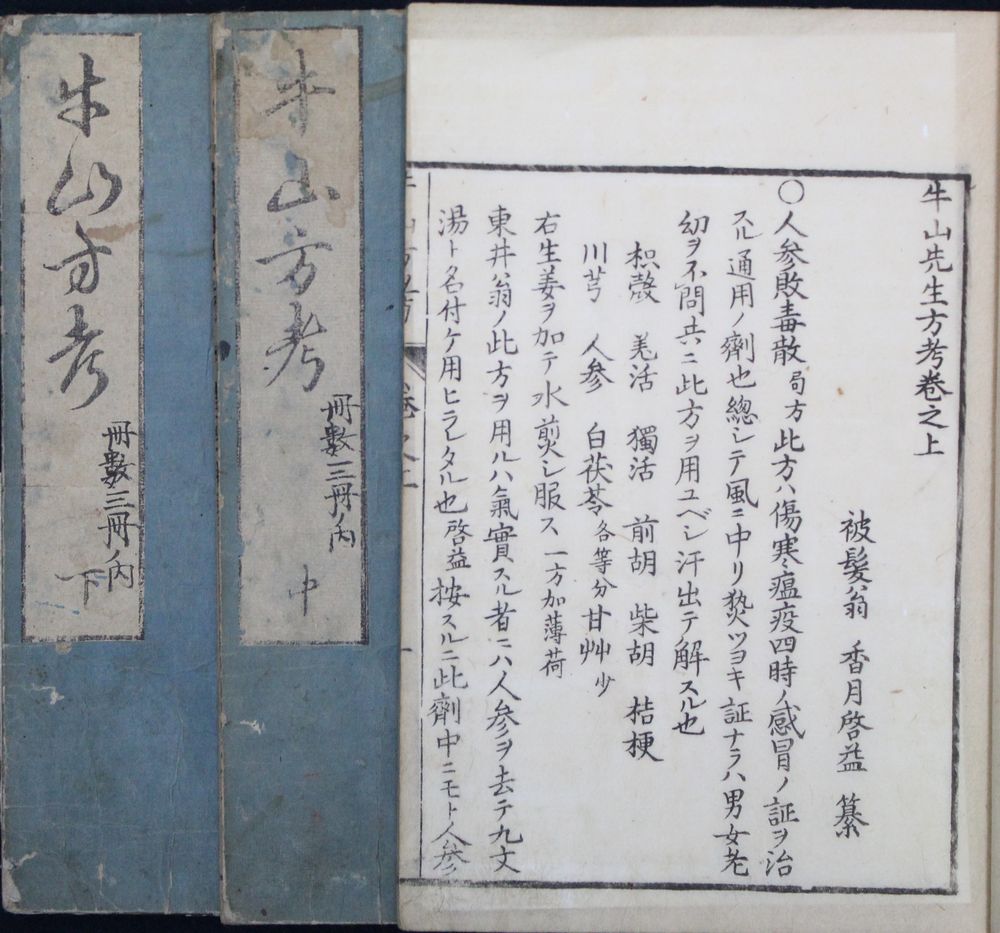 牛山先生方考卷之上
被髮翁 香月啓益 纂
○人参敗毒散 局方 此方ハ傷寒瘟疫四時ノ感冒ノ証ヲ治
スル通用ノ劑也總シテ風ニ中リ𤍠ツヨキ証ナラハ男女老
幼ヲ不問共ニ此方ヲ用ユベシ汗出テ解スル也
枳殼 羌活 獨活 前胡 柴胡 桔梗
川芎 人参 白茯苓 各等分 甘艸 少
右生姜ヲ加テ水煎シ服ス 一方加薄荷
東井翁ノ此方ヲ用ルハ氣實スル者ニハ人参ヲ去テ九文
湯ト名付ケ用ヒラレタル也 啓益 按スルニ此劑中ニモト人参
牛山方考 中
冊數三冊ノ内
牛山方考
冊數三冊ノ内 下